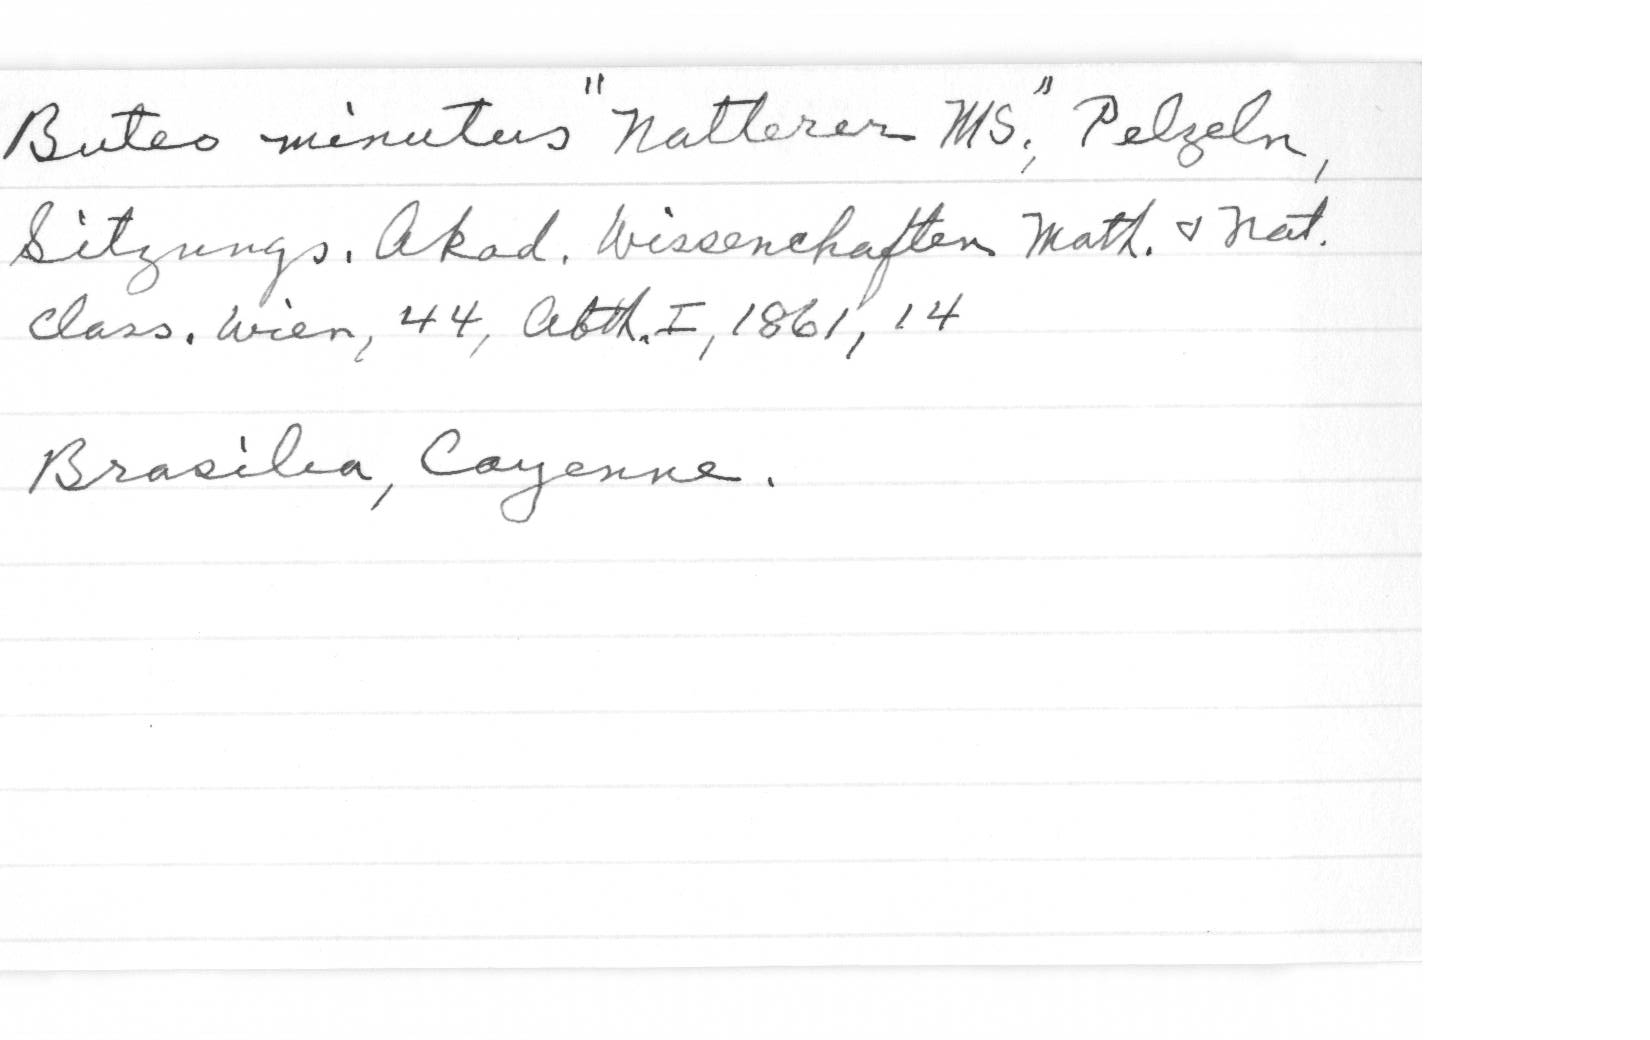 Buteo minutus "Natterer MS.," Pelzeln,
Sitzungs. Akad. Wissenchaften Math. & Nat.
Class. Wien, 44, Abth. I, 1861, 14
Brasilia, Cayenne.